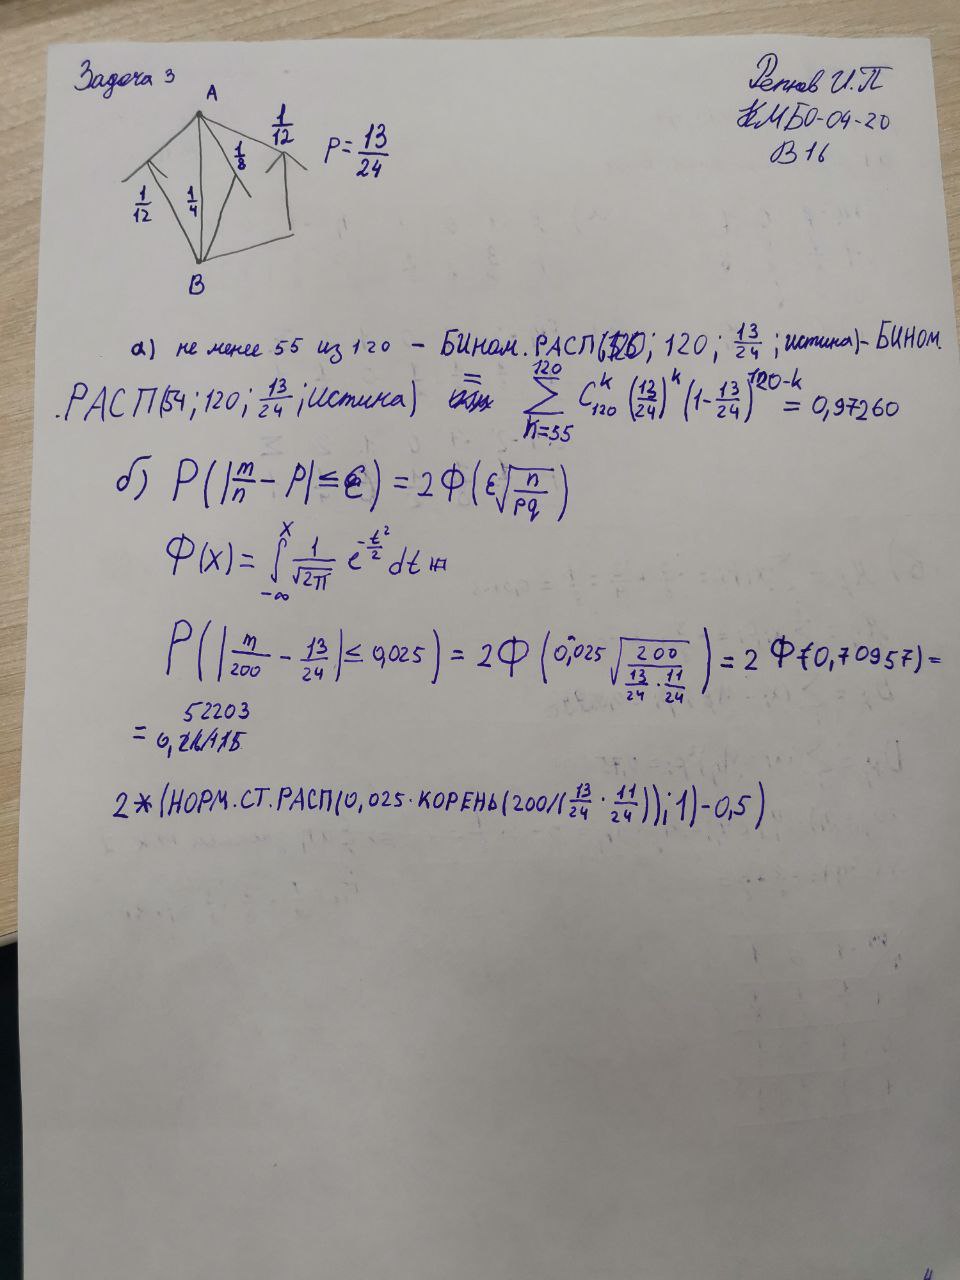 Задача 3
Репков И.П
КМБО-04-20
В 16
A
1/12
1/8
P = 13/24
1/12
1/4
B
а) не менее 55 из 120 - БИНОМ.РАСП(120; 120; 13/24; истина) - БИНОМ
.РАСП(54; 120; 13/24; Истина) = ∑_{k=55}^{120} C_{120}^{k} (13/24)^k (1-13/24)^{120-k} = 0,97260
б) P(|m/n - P| ≤ ε) = 2Ф(ε√(n/pq))
Ф(x) = ∫_{-∞}^{x} 1/√2π e^{-t²/2} dt
P(|m/200 - 13/24| ≤ 0,025) = 2Ф(0,025 √(200/(13/24 · 11/24))) = 2 Ф(0,70957) =
= 0,52203
2*(НОРМ.СТ.РАСП(0,025·КОРЕНЬ(200/(13/24 · 11/24)); 1) - 0,5)
4